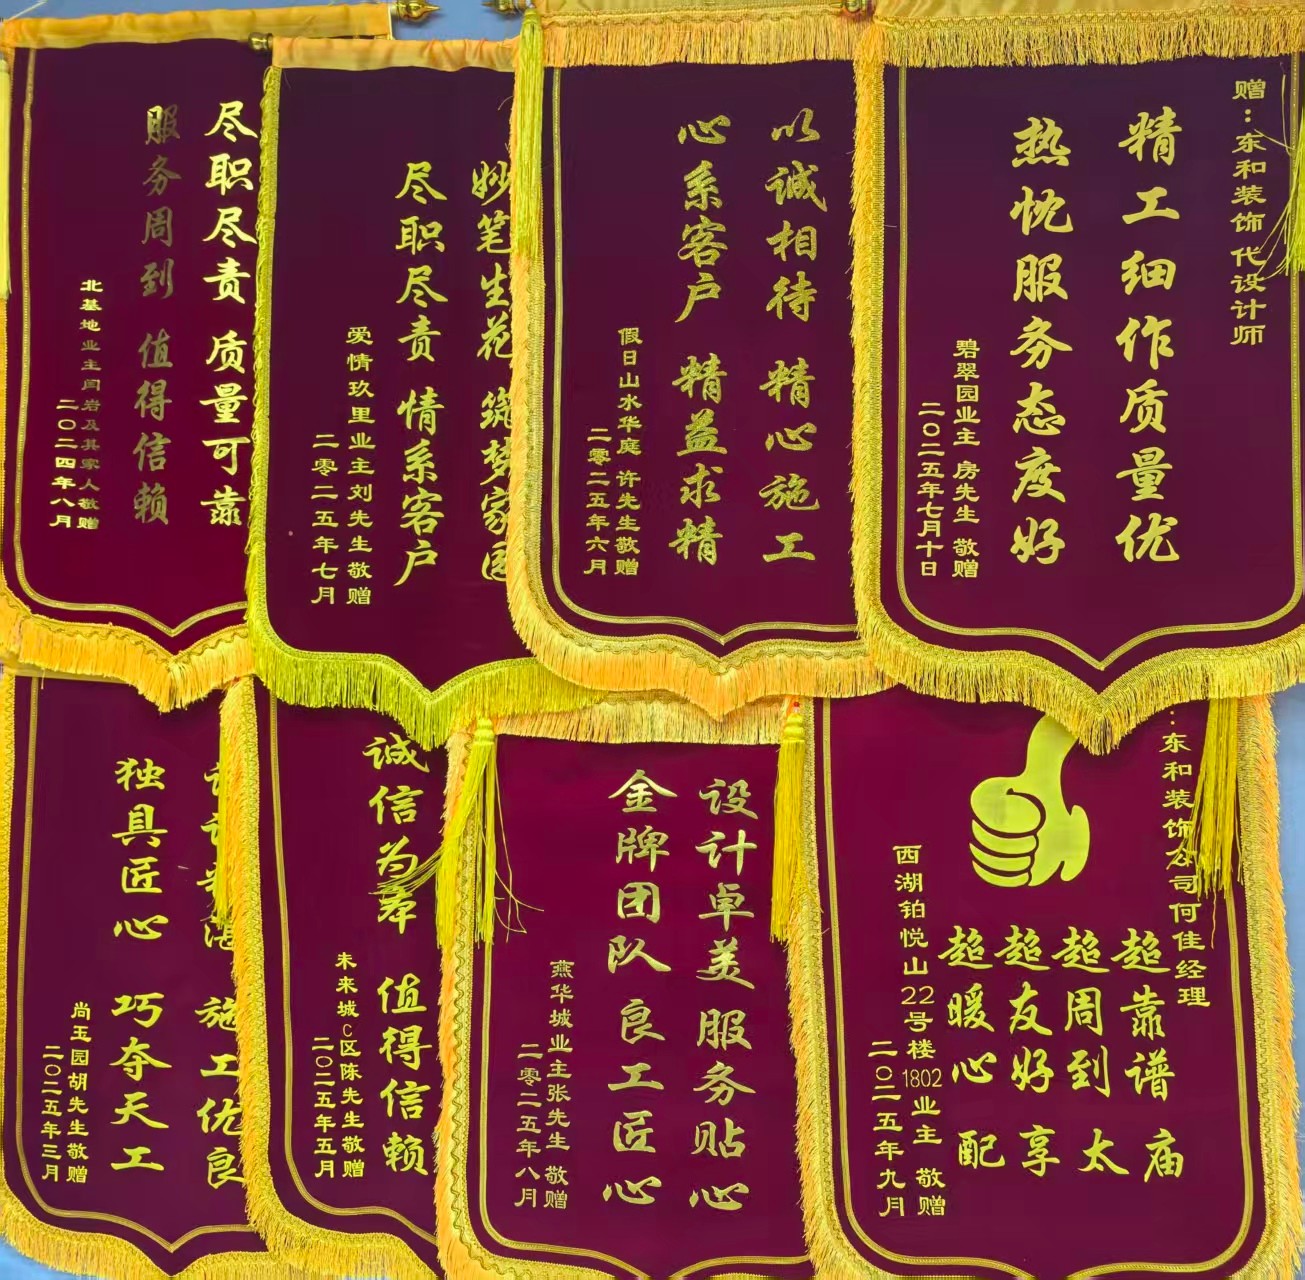 尽职尽责 质量可靠
服务周到 值得信赖
北基地业主闫岩及其家人敬赠
二〇二四年八月
妙笔生花 筑梦家园
尽职尽责 情系客户
爱情玖里业主刘先生敬赠
二零二五年七月
以诚相待 精心施工
心系客户 精益求精
假日山水华庭 许先生敬赠
二零二五年六月
赠:东和装饰 代设计师
精工细作质量优
热忱服务态度好
碧翠园业主 房先生 敬赠
二〇二五年七月十日
施工优良
独具匠心 巧夺天工
尚玉园胡先生敬赠
二〇二五年三月
诚信为本 值得信赖
未来城C区陈先生敬赠
二〇二五年五月
设计卓美 服务贴心
金牌团队 良工匠心
燕华城业主张先生 敬赠
二零二五年八月
:东和装饰公司何佳经理
超靠谱
超周到
超友好
超暖心
配享太庙
西湖铂悦山22号楼1802业主 敬赠
二〇二五年九月